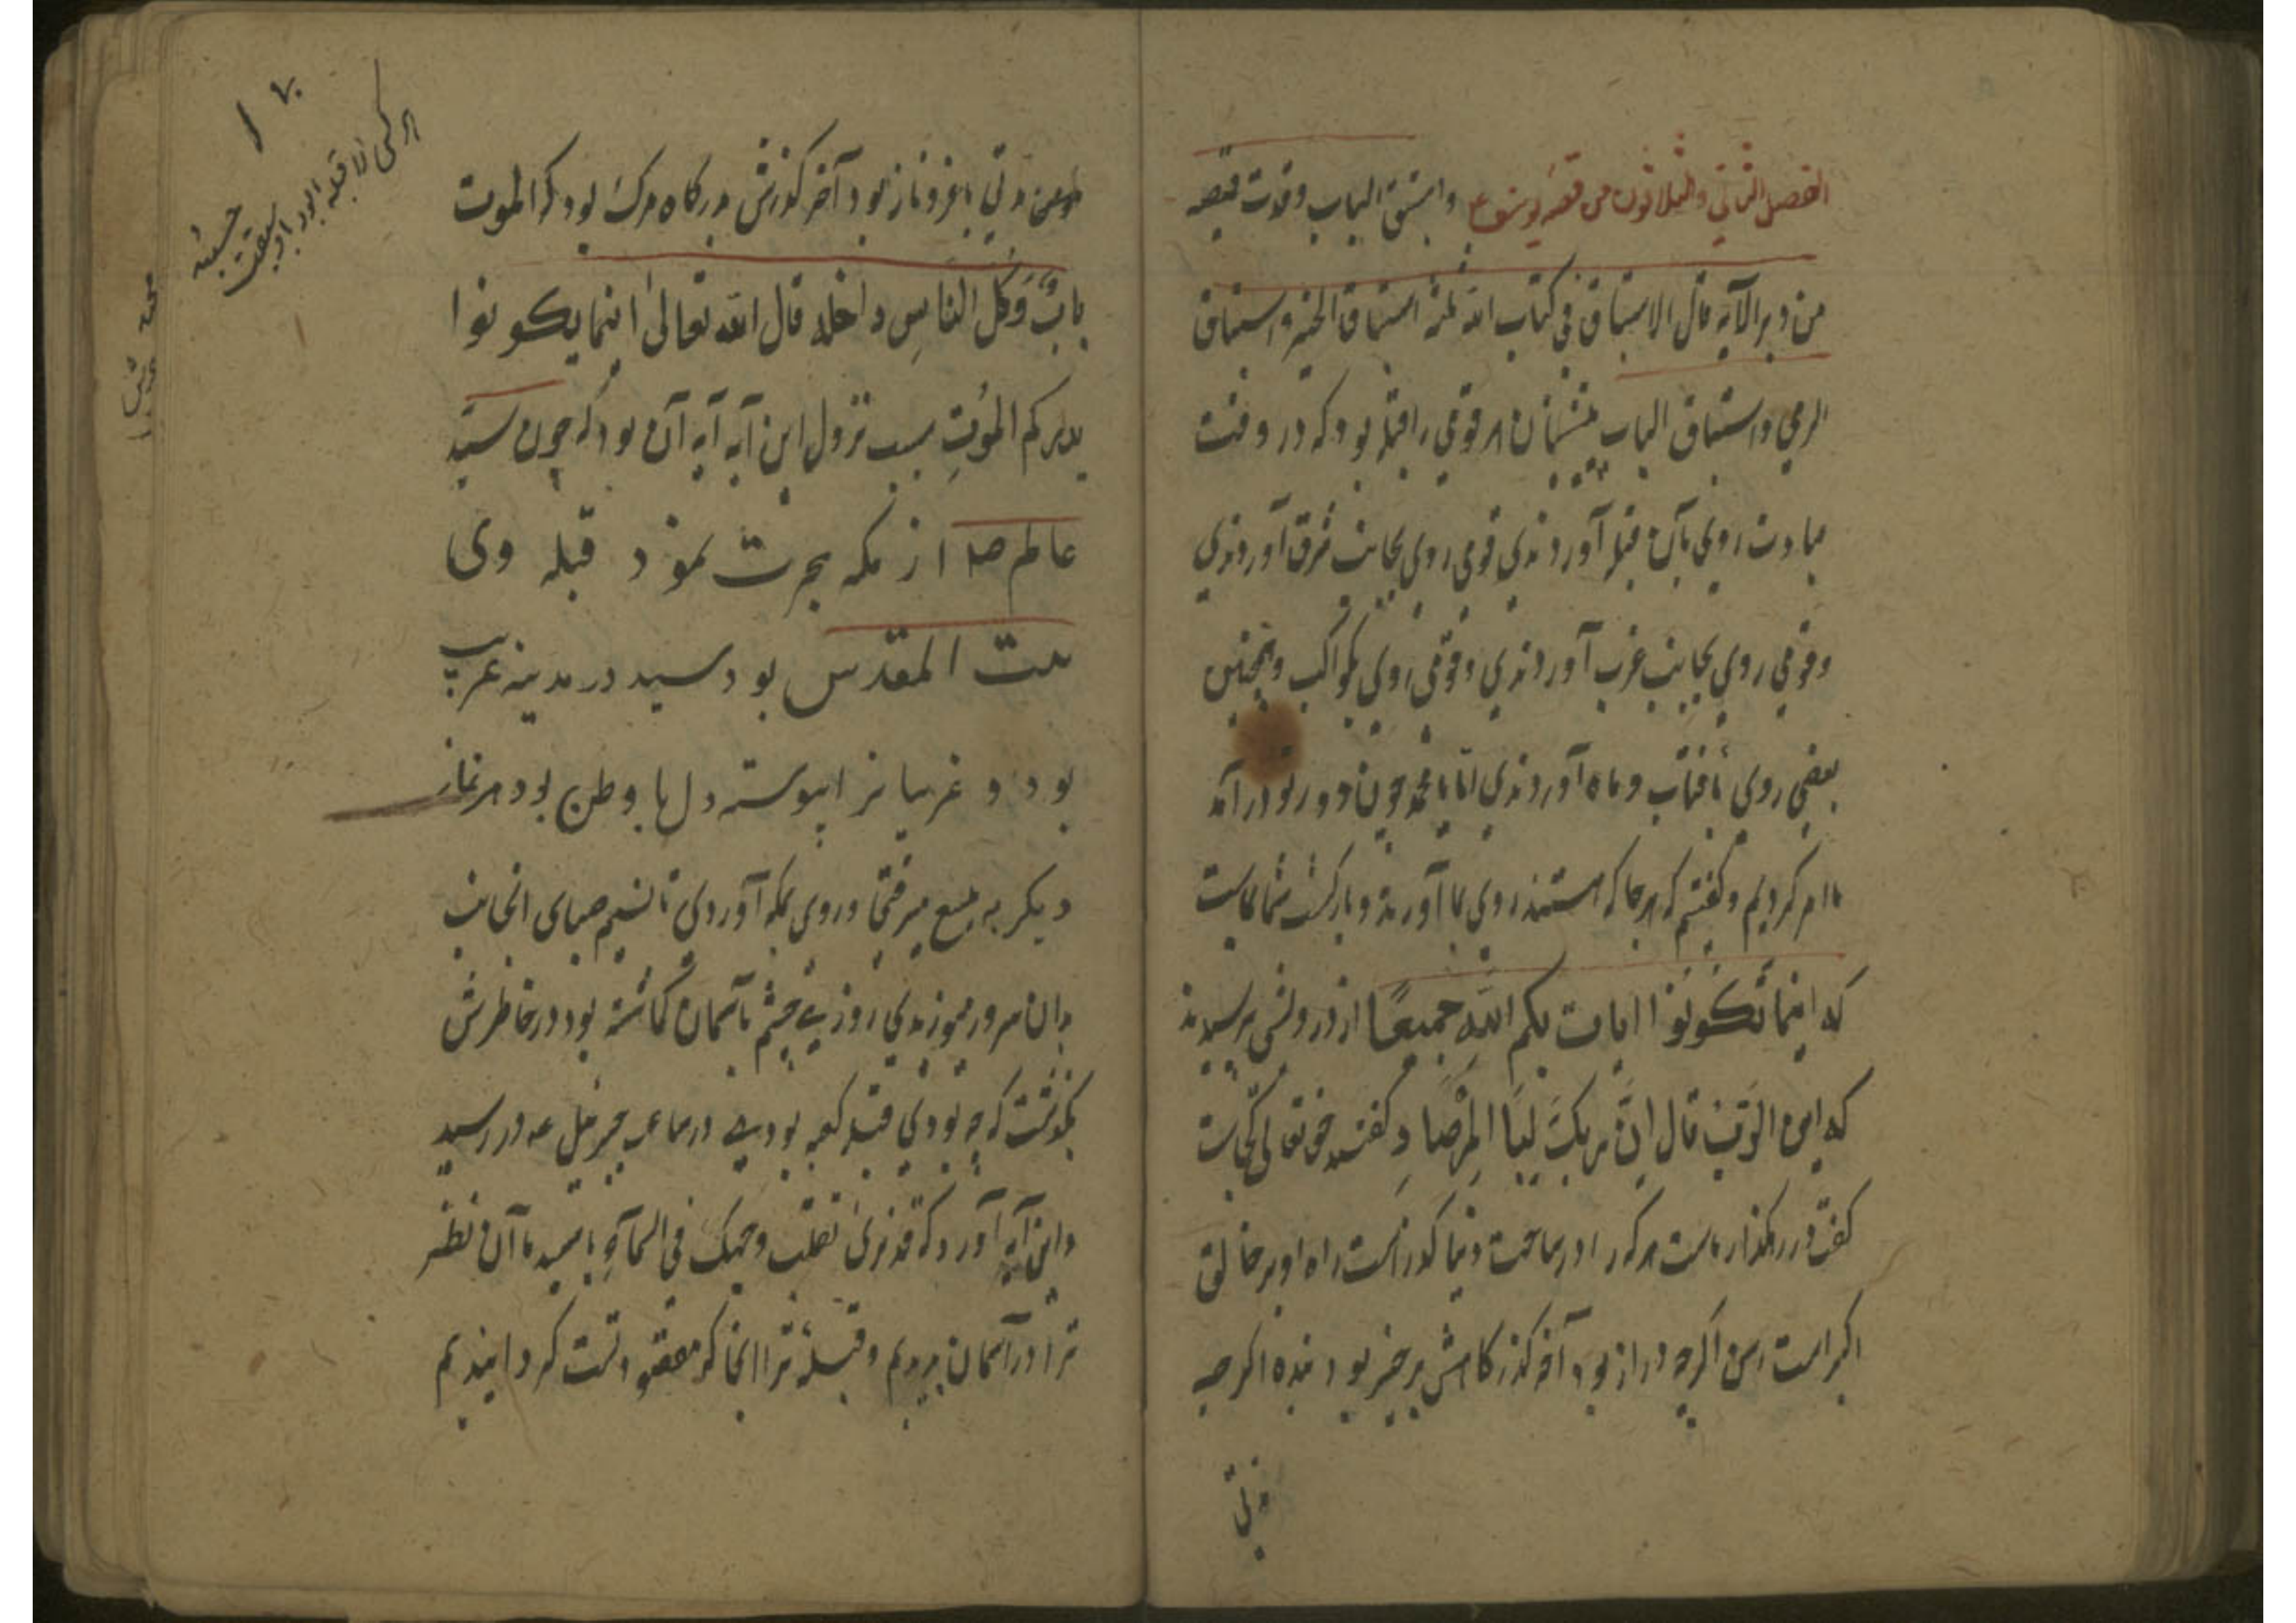 الفصل الثاني والثلاثون من قصه يوسف ع واستبق الباب وقدت قميصه
من دبر الآيه قال الاستباق في كتاب الله ثلثه استباق الخير واستباق
الرمي واستباق الباب پیشینیان هر قومی را قبله بود که در وقت
عبادت روی بآن قبله آوردندی قومی روی بجانب شرق آوردندی
وقومی روی بجانب غرب آوردندی وقومی روی بکواکب وهمچنین
بعضی روی بآفتاب وماه آوردندی اما یا محمد چون دور تو درآمد
ما امر کردیم وکفتیم که هرجا که هستند روی بما آورند وبازکشت شما بماست
که اینما تکونوا یات بکم الله جمیعا از درویشی پرسیدند
که این الرب قال ان ربک لبالمرصاد کفتند حق تعالی کجاست
کفت در رهکذار ماست هرکه را در ساحت دنیا کذر است راه او بر خالق
اکبر است رسن اکرچه دراز بود آخر کذرکاهش بر چنبر بود بنده اکرچه
مدتی
مدتی با عز و ناز بود آخر کذرش بر درکاه مرک بود که الموت
باب وکل الناس داخله قال الله تعالی اینما یکونوا
یدرکم الموت سبب نزول این آیه آیه آن بود که چون سید
عالم صلا از مکه هجرت نمود قبله وی
بیت المقدس بود سید در مدینه غریب
بود و غریبانرا پیوسته دل با وطن بود هر نماز
دیکر به بقیع میرفتی وروی بمکه آوردی تا نسیم صبای آنجانب
بدان سرور میوزیدی روزی چشم بآسمان کماشته بود در خاطرش
بکذشت که چه بودی قبله کعبه بودی در ساعت جبرئیل عه در رسید
واین آیه آورد که قد نری تقلب وجهک فی السمآء یا سید ما آن نظر
ترا در آسمان دیدیم وقبلهٔ ترا آنجا که مقصود تست کردانیدیم
هر کسی را قبله بود